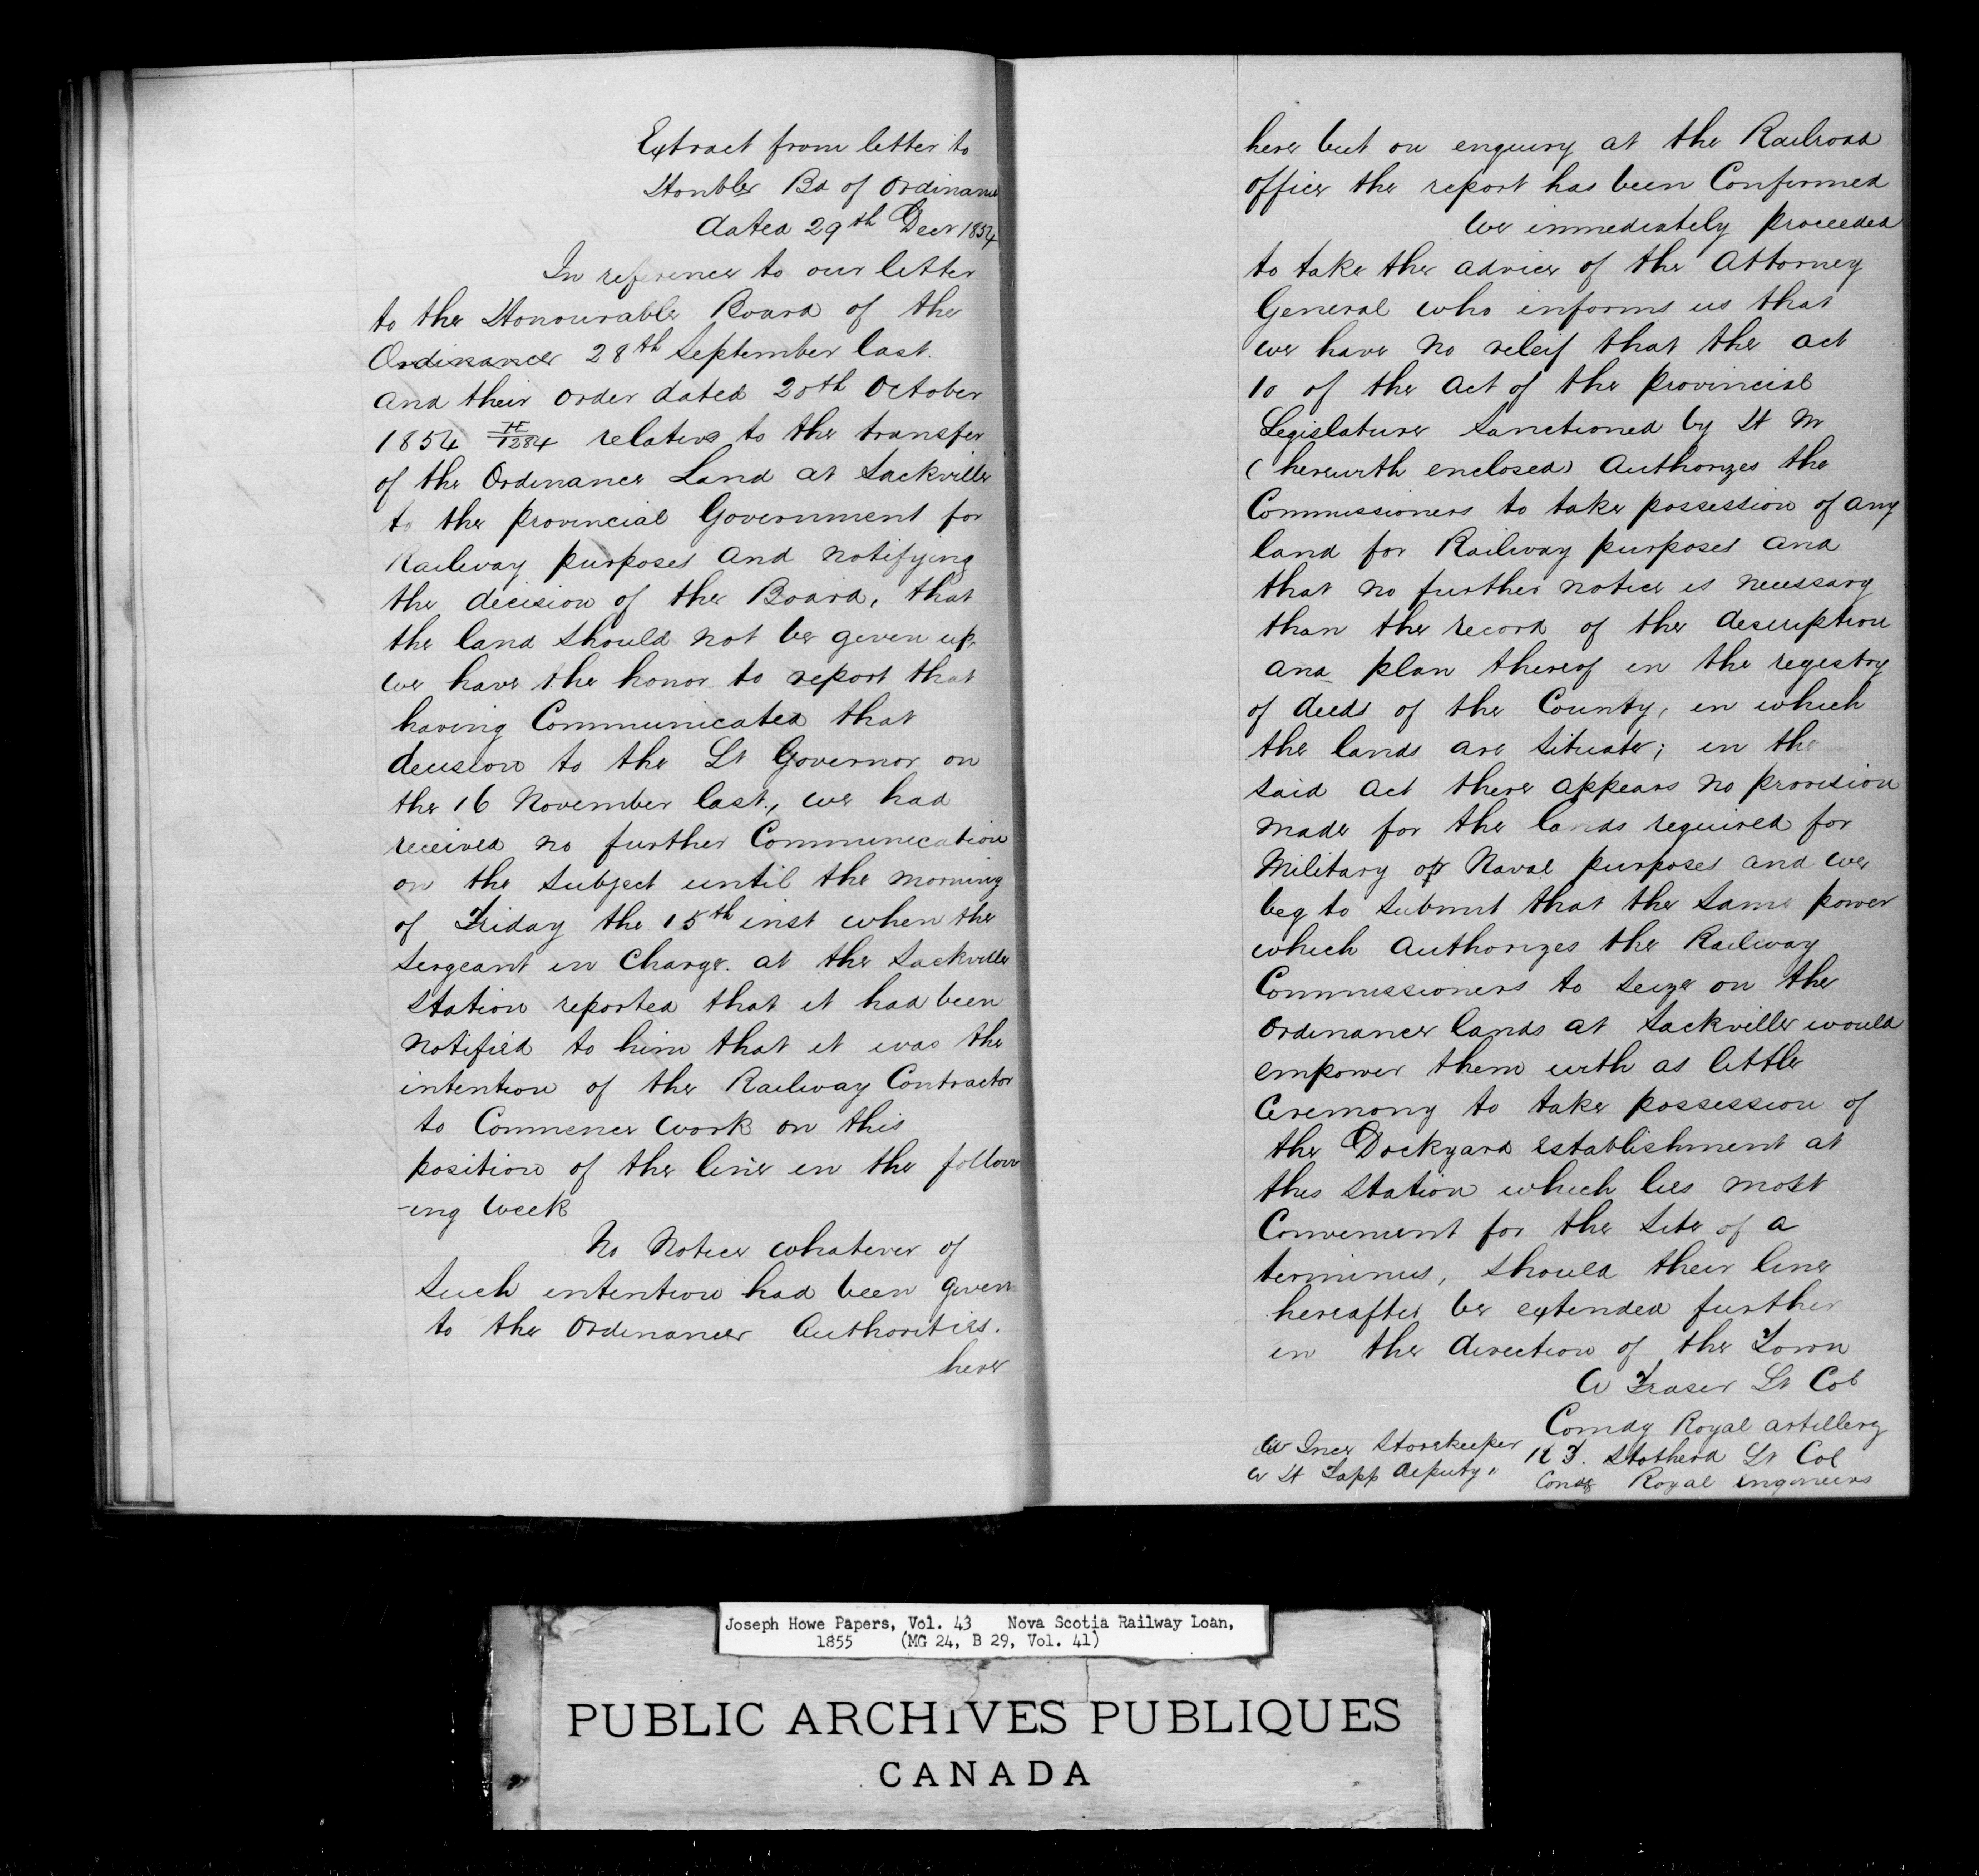 Extract from letter to
Honble Bd of Ordinance
dated 29th Decr 1854
In reference to our letter
to the Honourable Board of the
Ordinance 28th September last.
and their order dated 20th October
1854 H/1284 relative to the transfer
of the Ordinance Land at Sackville
to the provincial Government for
Railway purposes and notifying
the decision of the Board, that
the land should not be given up.
we have the honor to report that
having Communicated that
decision to the Lt Governor on
the 16 November last., we had
received no further Communication
on the subject until the morning
of Friday the 15th inst when the
Sergeant in Charge. at the Sackville
Station reported that it had been
notified to him that it was the
intention of the Railway Contractor
to Commence work on this
position of the line in the follow
-ing week
No Notice whatever of
such intention had been given
to the Ordinance Authorities.
here
here but on enquiry at the Railroad
office the report has been Confirmed
We immediately proceeded
to take the advice of the Attorney
General who informs us that
we have no releif that the act
10 of the act of the provincial
Legislature sanctioned by H M
(herewith enclosed) Authorizes the
Commissioners to take possession of any
land for Railway purposes and
that no further notice is necessary
than the record of the description
and plan thereof in the registry
of deeds of the County, in which
the lands are situate; in the
said act there appears no provision
made for the lands required for
Military or Naval purposes and we
beg to submit that the same power
which authorizes the Railway
Commissioners to seize on the
Ordinance lands at Sackville would
empower them with as little
Ceremony to take possession of
the Dockyard establishment at
this Station which lies most
Convenient for the site of a
terminus, should their line
hereafter be extended further
in the direction of the Town
A Fraser Lt Col
Comdg Royal artillery
Storekeeper R J. Stotherd Lt Col
Tapp deputy " Comdg Royal engineers
Joseph Howe Papers, Vol. 43 Nova Scotia Railway Loan,
1855 (MG 24, B 29, Vol. 41)
PUBLIC ARCHIVES PUBLIQUES
CANADA